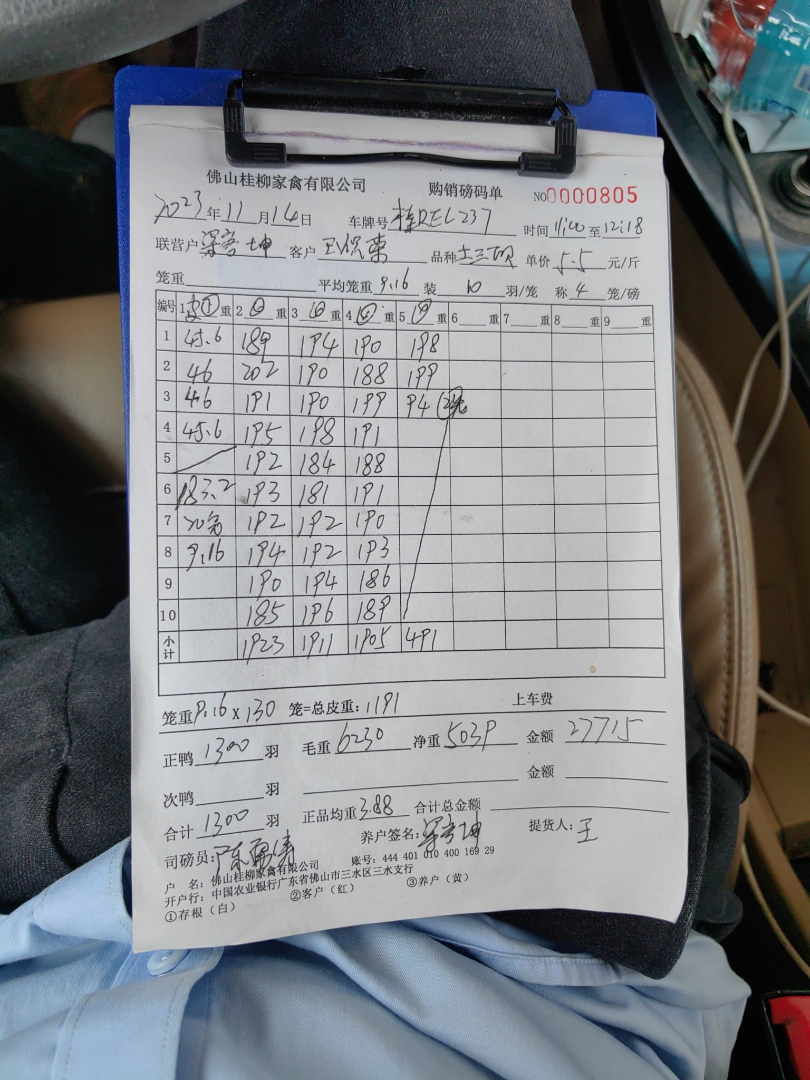 佛山桂柳家禽有限公司 购销磅码单 NO0000805
2023年11月14日 车牌号 桂REL237 时间 11:00至12:18
联营户 坤 客户 王 品种 土三 单价 5.5 元/斤
笼重 平均笼重 9.16 装 10 羽/笼 称 4 笼/磅
编号 1 皮① 重 2 ④ 重 3 ④ 重 4 ④ 重 5 ④ 重 6 重 7 重 8 重 9 重
1 45.6 189 194 190 198
2 46 202 190 188 199
3 46 191 190 199 94
4 45.6 195 198 191
5 192 184 188
6 183.2 193 181 191
7 20包 192 192 190
8 9.16 194 192 193
9 190 194 186
10 185 196 189
小计 1923 1911 1905 491
笼重 9.16 x 130 笼=总皮重: 1191 上车费
正鸭 1300 羽 毛重 6230 净重 5039 金额 27715
次鸭 羽 金额
合计 1300 羽 正品均重 3.88 合计总金额
司磅员: 陈 养户签名: 坤 提货人: 王
户 名: 佛山桂柳家禽有限公司 账号: 444 401 010 400 169 29
开户行: 中国农业银行广东省佛山市三水区三水支行
①存根（白） ②客户（红） ③养户（黄）